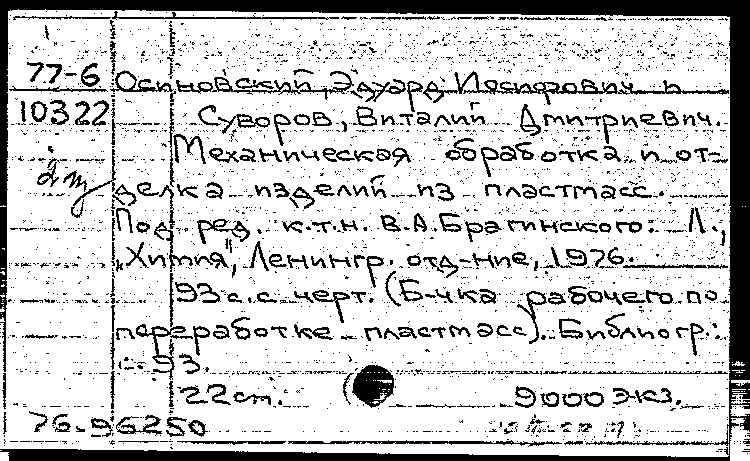 77-6 Осиновский, Эдуард Иосифович и
10322 Суворов, Виталий Дмитриевич.
Механическая обработка и от-
делка изделий из пластмасс.
Под ред. к.т.н. В.А.Брагинского. Л.,
"Химия", Ленингр. отд-ние, 1976.
93 с. с черт. (Б-чка рабочего по
переработке пластмасс). Библиогр.:
с. 93.
22 см. 9000 экз.
76-96250